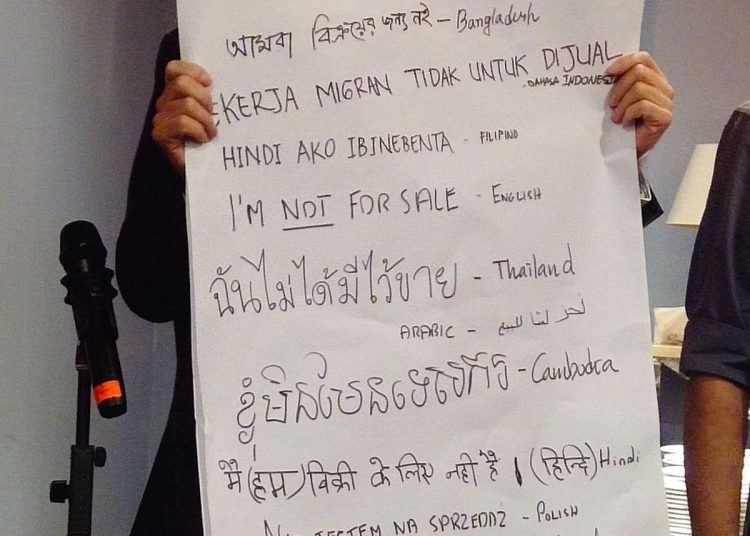 আমরা বিক্রয়ের জন্য নই – Bangladesh
EKERJA MIGRAN TIDAK UNTUK DIJUAL
- BAHASA INDONESIA
HINDI AKO IBINEBENTA - FILIPINO
I'M NOT FOR SALE - ENGLISH
ฉันไม่ได้มีไว้ขาย - Thailand
ARABIC - نحن لسنا للبيع
ខ្ញុំមិនមែន - Cambodia
मैं (हम) बिक्री के लिए नहीं है । (हिन्दि) Hindi
JESTEM NA SPRZEDAŻ - POLISH